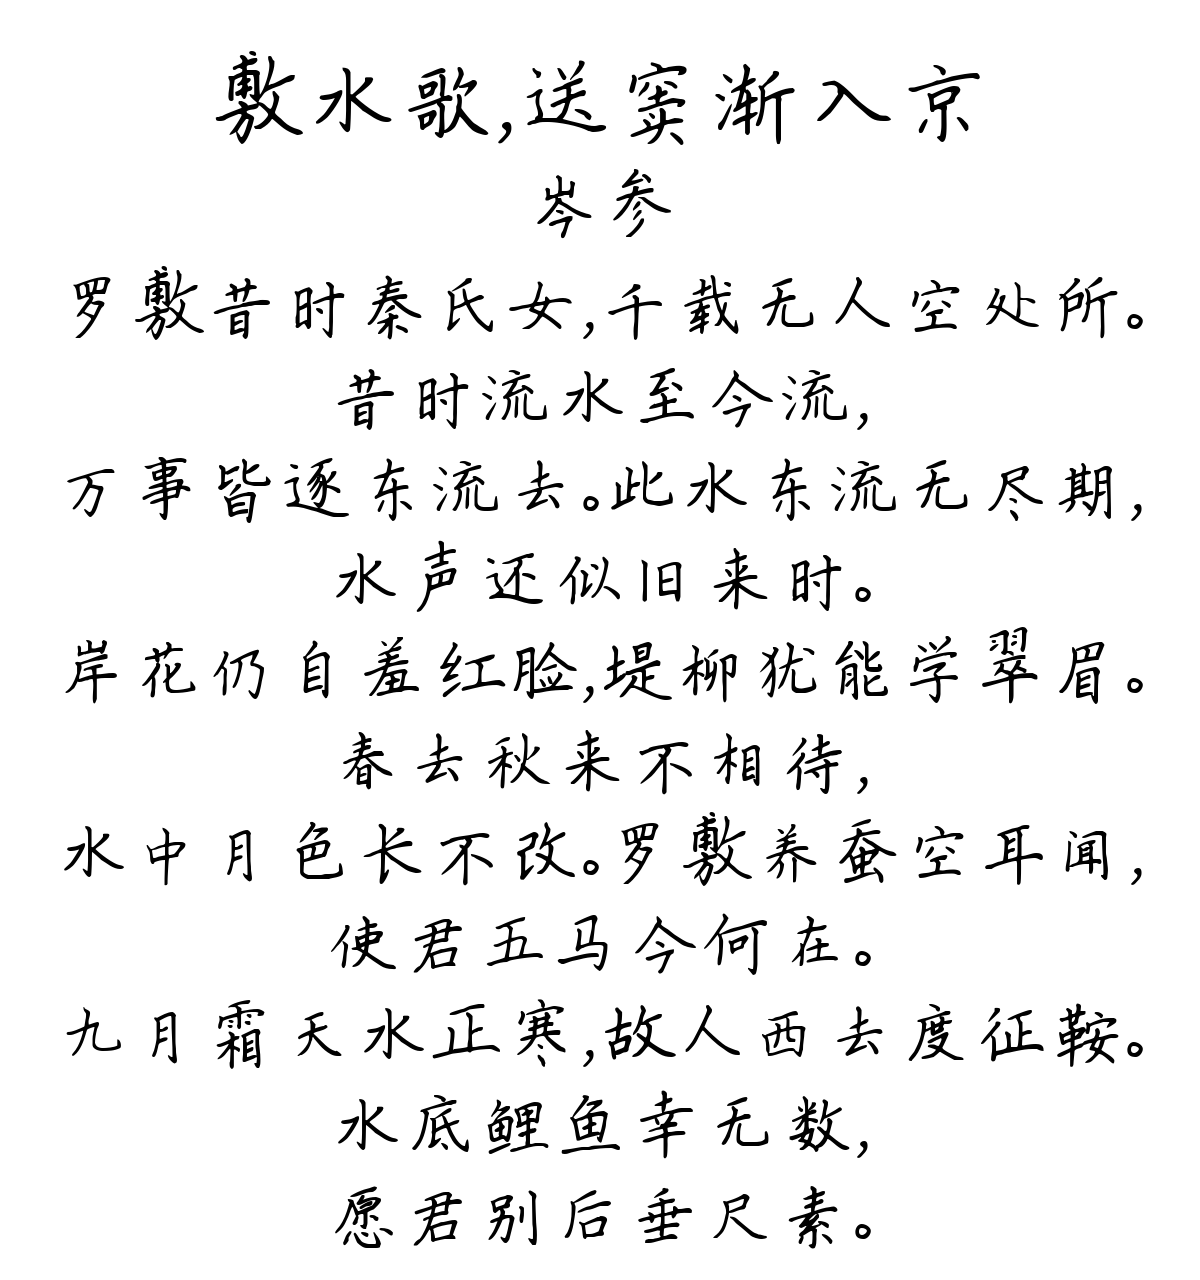 敷水歌,送窦渐入京
岑参
罗敷昔时秦氏女,千载无人空处所。
昔时流水至今流,
万事皆逐东流去。此水东流无尽期,
水声还似旧来时。
岸花仍自羞红脸,堤柳犹能学翠眉。
春去秋来不相待,
水中月色长不改。罗敷养蚕空耳闻,
使君五马今何在。
九月霜天水正寒,故人西去度征鞍。
水底鲤鱼幸无数,
愿君别后垂尺素。